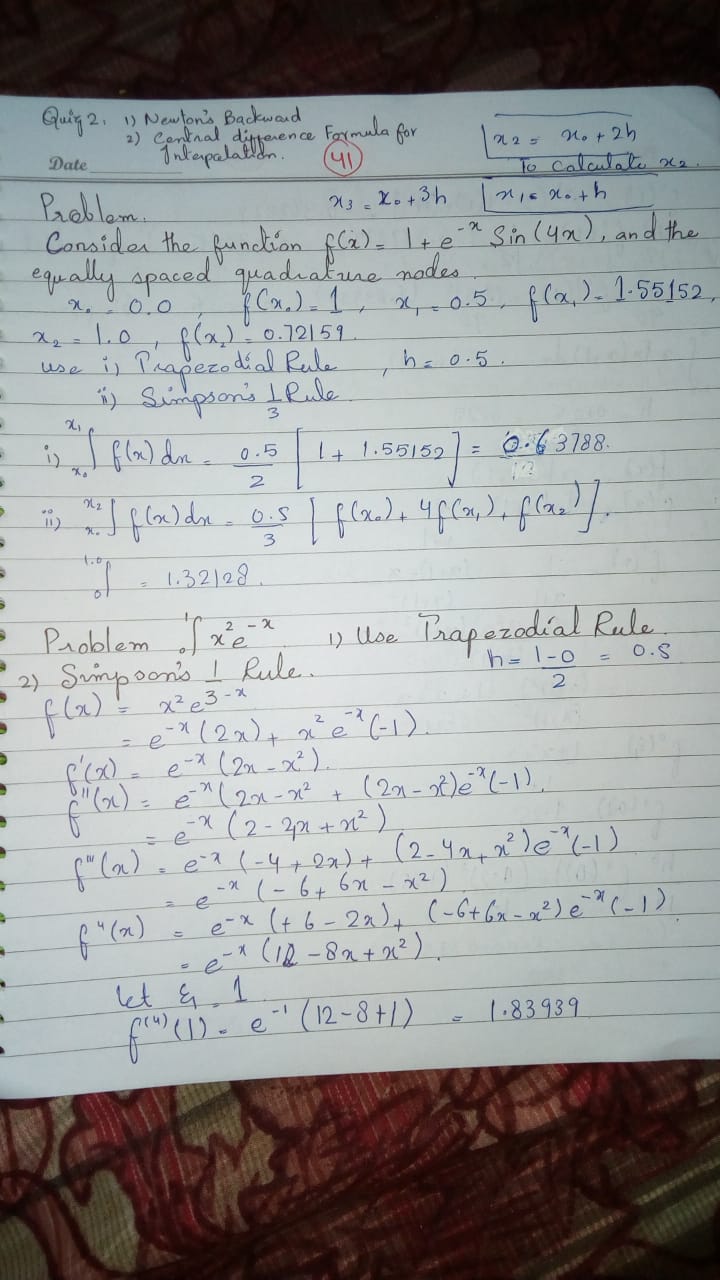 Quiz 2. 1) Newton's Backward
2) Central difference Formula for
Interpalation.
Date
41
x2 = x0 + 2h
To calculate x2.
x3 = x0 + 3h
x1 = x0 + h
Problem.
Consider the function f(x) = 1 + e^-x Sin(4x), and the
equally spaced quadrature nodes.
x0 = 0.0, f(x0) = 1, x1 = 0.5, f(x1) = 1.55152,
x2 = 1.0, f(x2) = 0.72159.
use i) Trapezodial Rule, h = 0.5.
ii) Simpson's 1/3 Rule.
i) ∫x0^x1 f(x) dx = 0.5/2 [1 + 1.55152] = 0.63788.
ii) ∫x0^x2 f(x) dx = 0.5/3 [f(x0) + 4f(x1) + f(x2)].
∫0^1.0 = 1.32128.
Problem ∫0^1 x^2 e^-x 1) Use Trapezodial Rule.
2) Simpson's 1/3 Rule. h = 1-0/2 = 0.5
f(x) = x^2 e^-x
= e^-x (2x) + x^2 e^-x (-1).
f'(x) = e^-x (2x - x^2).
f''(x) = e^-x (2x - x^2 + (2x - x^2)e^-x (-1).
= e^-x (2 - 2x + x^2)
f'''(x) = e^-x (-4 + 2x) + (2 - 4x + x^2)e^-x (-1)
= e^-x (-6 + 6x - x^2)
f^4(x) = e^-x (+6 - 2x) + (-6 + 6x - x^2) e^-x (-1).
= e^-x (12 - 8x + x^2).
let ξ1 = 1
f^(4)(1) = e^-1 (12 - 8 + 1) = 1.83939